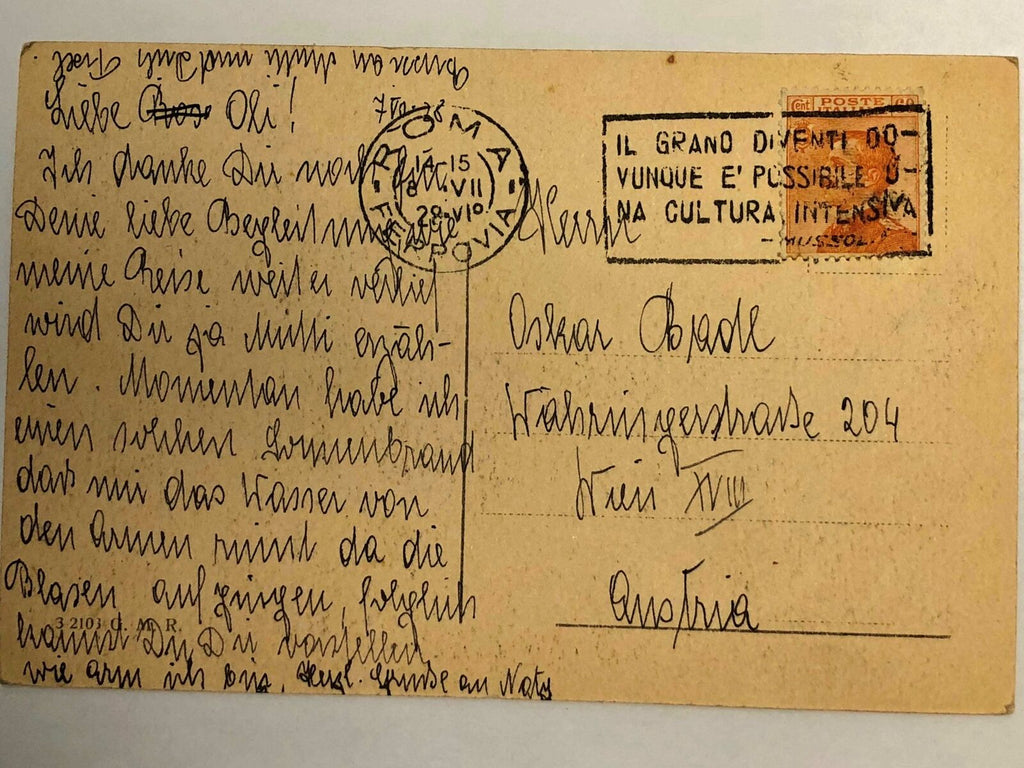 Bussi an Mutti und Dich
Liebe Oli!
7/8 28
Ich danke Dir noch für
Deine liebe Begleitung. Wie
meine Reise weiter verlief
wird Dir ja Mutti erzäh-
len. Momentan habe ich
einen solchen Sonnenbrand
daß mir das Wasser von
den Armen rinnt da die
Blasen aufgingen, folglich
kannst Du Dir vorstellen
wie arm ich bin. Herzl. Grüße an
3 2103 G. M. R.
ROMA
14-15
VII
28-VIº
FERROVIA
IL GRANO DIVENTI DO-
VUNQUE E' POSSIBILE U-
NA CULTURA INTENSIVA
-MUSSOL
Cent POSTE 60
ITALIANE
Herrn
Oskar
Währingerstraße 204
Wien XVIII
Austria